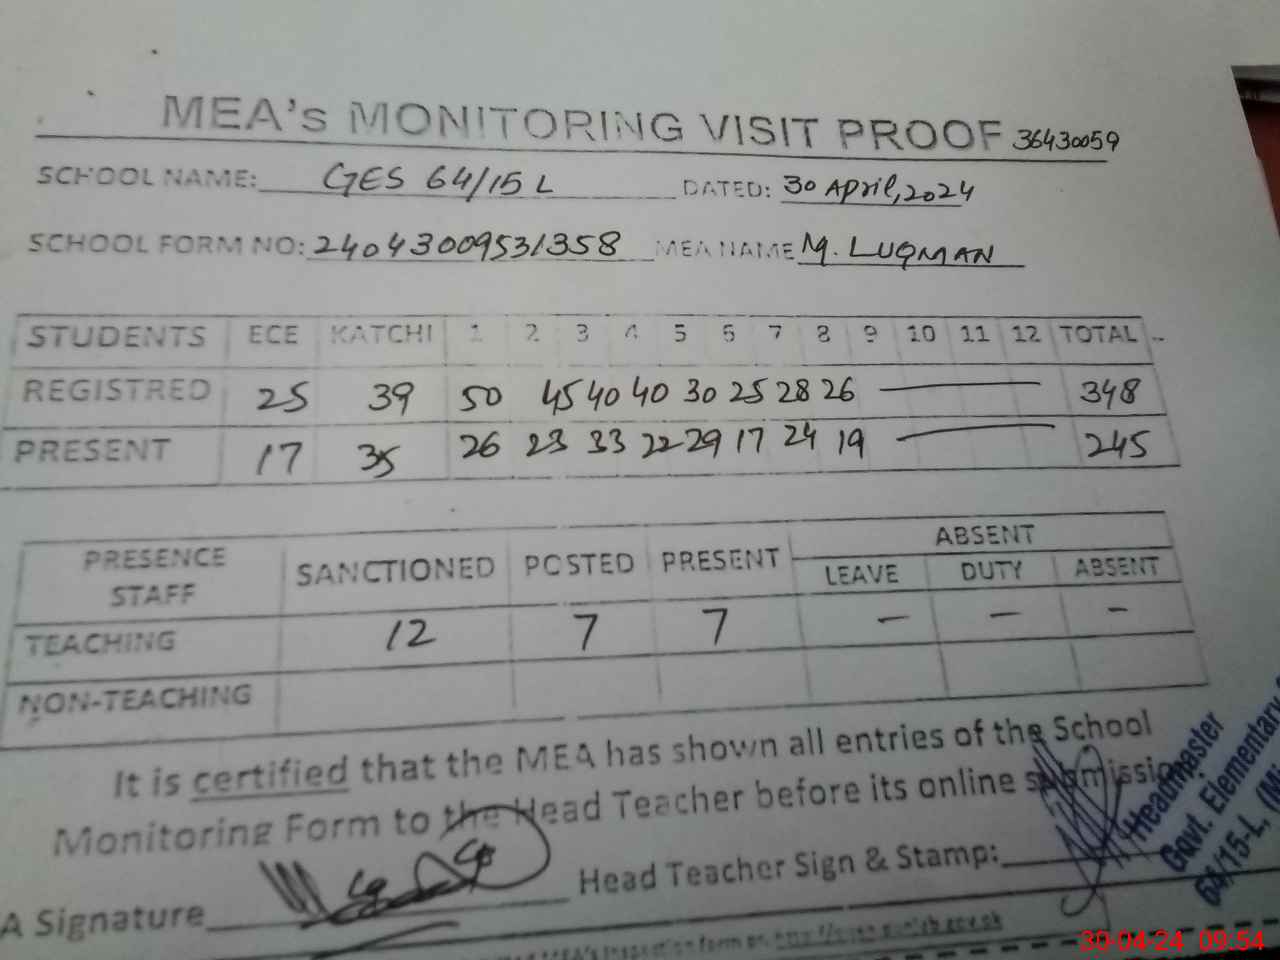 MEA's MONITORING VISIT PROOF 36430059
SCHOOL NAME: GES 64/15 L DATED: 30 April, 2024
SCHOOL FORM NO: 24043009531358 MEA NAME M. LUQMAN
STUDENTS ECE KATCHI 1 2 3 4 5 6 7 8 9 10 11 12 TOTAL
REGISTRED 25 39 50 45 40 40 30 25 28 26 — 348
PRESENT 17 35 26 23 33 22 29 17 24 19 — 245
PRESENCE STAFF SANCTIONED POSTED PRESENT ABSENT
LEAVE DUTY ABSENT
TEACHING 12 7 7 — — —
NON-TEACHING
It is certified that the MEA has shown all entries of the School
Monitoring Form to the Head Teacher before its online submission.
A Signature Head Teacher Sign & Stamp:
Headmaster
Govt. Elementary
64/15-L,
MEA's Inspection form on
30-04-24 09:54